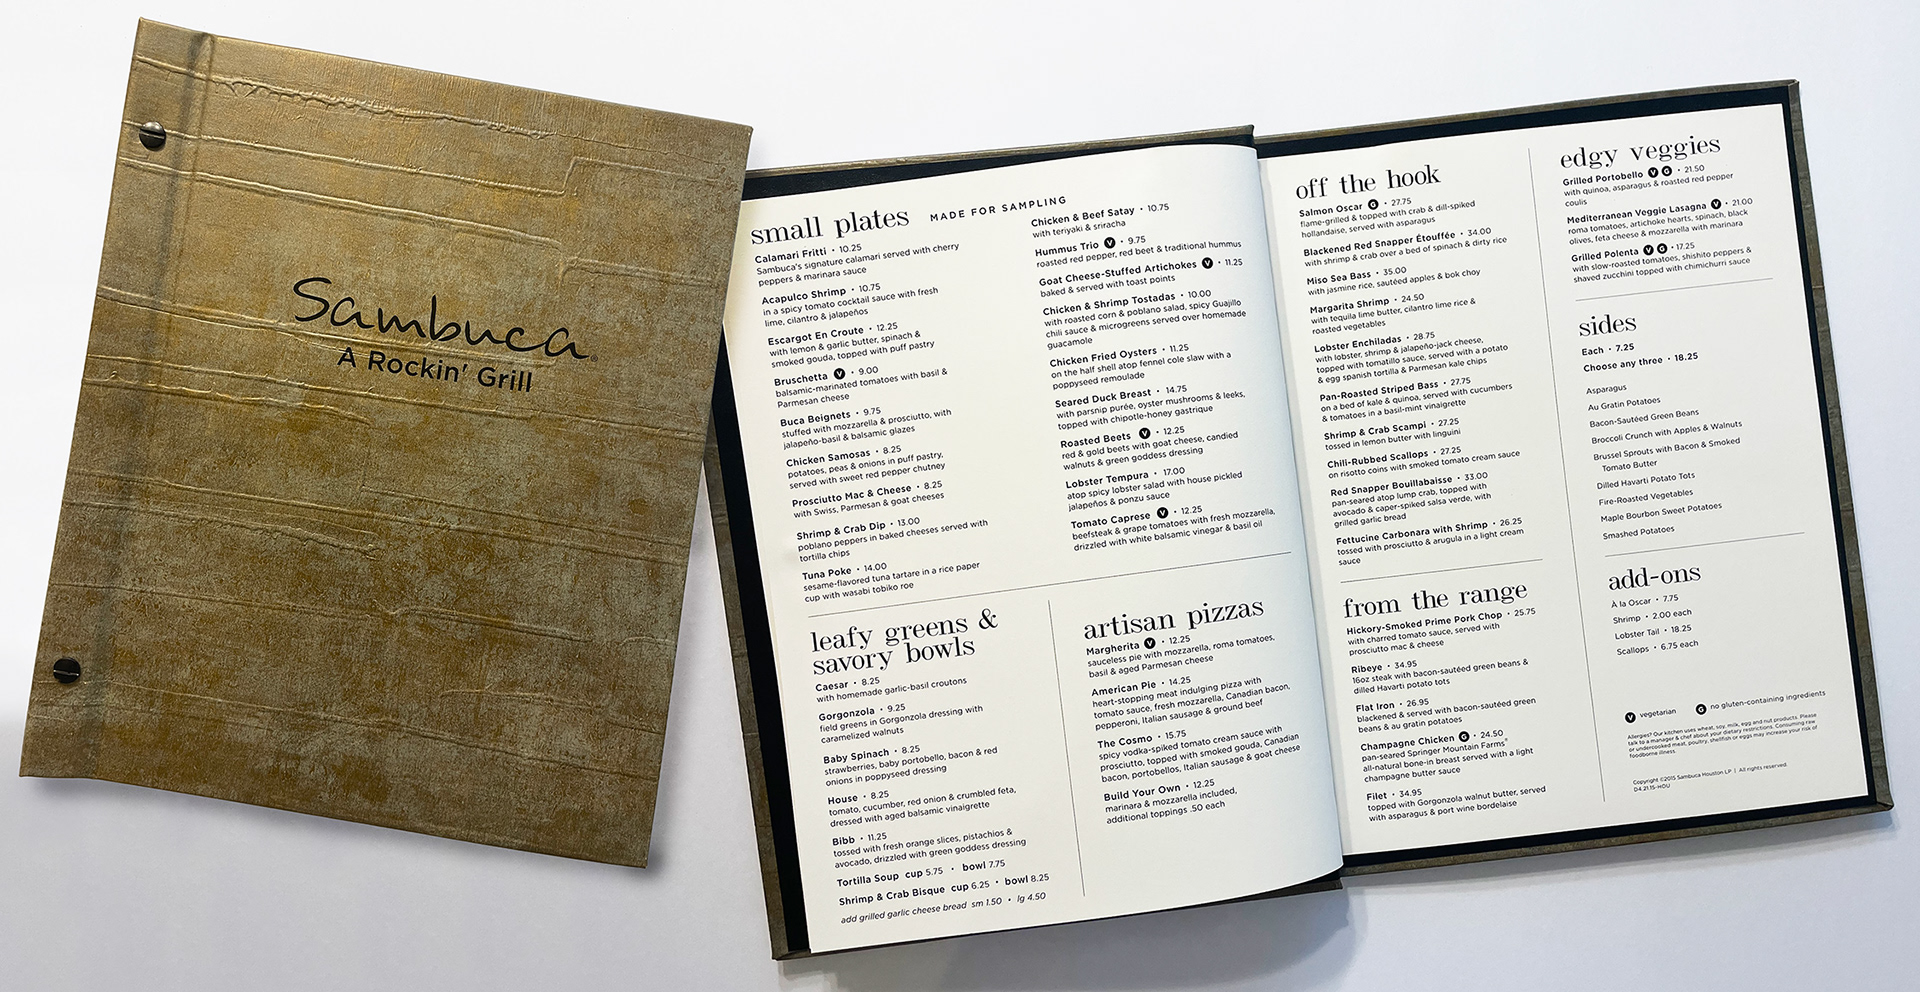 Sambuca®
A Rockin' Grill
small plates MADE FOR SAMPLING
Calamari Fritti • 10.25
Sambuca's signature calamari served with cherry
peppers & marinara sauce
Acapulco Shrimp • 10.75
in a spicy tomato cocktail sauce with fresh
lime, cilantro & jalapeños
Escargot En Croute • 12.25
with lemon & garlic butter, spinach &
smoked gouda, topped with puff pastry
Bruschetta V • 9.00
balsamic-marinated tomatoes with basil &
Parmesan cheese
Buca Beignets • 9.75
stuffed with mozzarella & prosciutto, with
jalapeño-basil & balsamic glazes
Chicken Samosas • 8.25
potatoes, peas & onions in puff pastry,
served with sweet red pepper chutney
Prosciutto Mac & Cheese • 8.25
with Swiss, Parmesan & goat cheeses
Shrimp & Crab Dip • 13.00
poblano peppers in baked cheeses served with
tortilla chips
Tuna Poke • 14.00
sesame-flavored tuna tartare in a rice paper
cup with wasabi tobiko roe
Chicken & Beef Satay • 10.75
with teriyaki & sriracha
Hummus Trio V • 9.75
roasted red pepper, red beet & traditional hummus
Goat Cheese-Stuffed Artichokes V • 11.25
baked & served with toast points
Chicken & Shrimp Tostadas • 10.00
with roasted corn & poblano salad, spicy Guajillo
chili sauce & microgreens served over homemade
guacamole
Chicken Fried Oysters • 11.25
on the half shell atop fennel cole slaw with a
poppyseed remoulade
Seared Duck Breast • 14.75
with parsnip purée, oyster mushrooms & leeks,
topped with chipotle-honey gastrique
Roasted Beets V • 12.25
red & gold beets with goat cheese, candied
walnuts & green goddess dressing
Lobster Tempura • 17.00
atop spicy lobster salad with house pickled
jalapeños & ponzu sauce
Tomato Caprese V • 12.25
beefsteak & grape tomatoes with fresh mozzarella,
drizzled with white balsamic vinegar & basil oil
leafy greens &
savory bowls
Caesar • 8.25
with homemade garlic-basil croutons
Gorgonzola • 9.25
field greens in Gorgonzola dressing with
caramelized walnuts
Baby Spinach • 8.25
strawberries, baby portobello, bacon & red
onions in poppyseed dressing
House • 8.25
tomato, cucumber, red onion & crumbled feta,
dressed with aged balsamic vinaigrette
Bibb • 11.25
tossed with fresh orange slices, pistachios &
avocado, drizzled with green goddess dressing
Tortilla Soup cup 5.75 • bowl 7.75
Shrimp & Crab Bisque cup 6.25 • bowl 8.25
add grilled garlic cheese bread sm 1.50 • lg 4.50
artisan pizzas
Margherita V • 12.25
sauceless pie with mozzarella, roma tomatoes,
basil & aged Parmesan cheese
American Pie • 14.25
heart-stopping meat indulging pizza with
tomato sauce, fresh mozzarella, Canadian bacon,
pepperoni, Italian sausage & ground beef
The Cosmo • 15.75
spicy vodka-spiked tomato cream sauce with
prosciutto, topped with smoked gouda, Canadian
bacon, portobellos, Italian sausage & goat cheese
Build Your Own • 12.25
marinara & mozzarella included,
additional toppings .50 each
off the hook
Salmon Oscar G • 27.75
flame-grilled & topped with crab & dill-spiked
hollandaise, served with asparagus
Blackened Red Snapper Étouffée • 34.00
with shrimp & crab over a bed of spinach & dirty rice
Miso Sea Bass • 35.00
with jasmine rice, sautéed apples & bok choy
Margarita Shrimp • 24.50
with tequila lime butter, cilantro lime rice &
roasted vegetables
Lobster Enchiladas • 28.75
with lobster, shrimp & jalapeño-jack cheese,
topped with tomatillo sauce, served with a potato
& egg spanish tortilla & Parmesan kale chips
Pan-Roasted Striped Bass • 27.75
on a bed of kale & quinoa, served with cucumbers
& tomatoes in a basil-mint vinaigrette
Shrimp & Crab Scampi • 27.25
tossed in lemon butter with linguini
Chili-Rubbed Scallops • 27.25
on risotto coins with smoked tomato cream sauce
Red Snapper Bouillabaisse • 33.00
pan-seared atop lump crab, topped with
avocado & caper-spiked salsa verde, with
grilled garlic bread
Fettucine Carbonara with Shrimp • 26.25
tossed with prosciutto & arugula in a light cream
sauce
from the range
Hickory-Smoked Prime Pork Chop • 25.75
with charred tomato sauce, served with
prosciutto mac & cheese
Ribeye • 34.95
16oz steak with bacon-sautéed green beans &
dilled Havarti potato tots
Flat Iron • 26.95
blackened & served with bacon-sautéed green
beans & au gratin potatoes
Champagne Chicken G • 24.50
pan-seared Springer Mountain Farms®
all-natural bone-in breast served with a light
champagne butter sauce
Filet • 34.95
topped with Gorgonzola walnut butter, served
with asparagus & port wine bordelaise
edgy veggies
Grilled Portobello V G • 21.50
with quinoa, asparagus & roasted red pepper
coulis
Mediterranean Veggie Lasagna V • 21.00
roma tomatoes, artichoke hearts, spinach, black
olives, feta cheese & mozzarella with marinara
Grilled Polenta V G • 17.25
with slow-roasted tomatoes, shishito peppers &
shaved zucchini topped with chimichurri sauce
sides
Each • 7.25
Choose any three • 18.25
Asparagus
Au Gratin Potatoes
Bacon-Sautéed Green Beans
Broccoli Crunch with Apples & Walnuts
Brussel Sprouts with Bacon & Smoked
Tomato Butter
Dilled Havarti Potato Tots
Fire-Roasted Vegetables
Maple Bourbon Sweet Potatoes
Smashed Potatoes
add-ons
À la Oscar • 7.75
Shrimp • 2.00 each
Lobster Tail • 18.25
Scallops • 6.75 each
V vegetarian G no gluten-containing ingredients
Allergies? Our kitchen uses wheat, soy, milk, egg and nut products. Please
talk to a manager & chef about your dietary restrictions. Consuming raw
or undercooked meat, poultry, shellfish or eggs may increase your risk of
foodborne illness.
Copyright ©2015 Sambuca Houston LP | All rights reserved.
D4.21.15-HOU